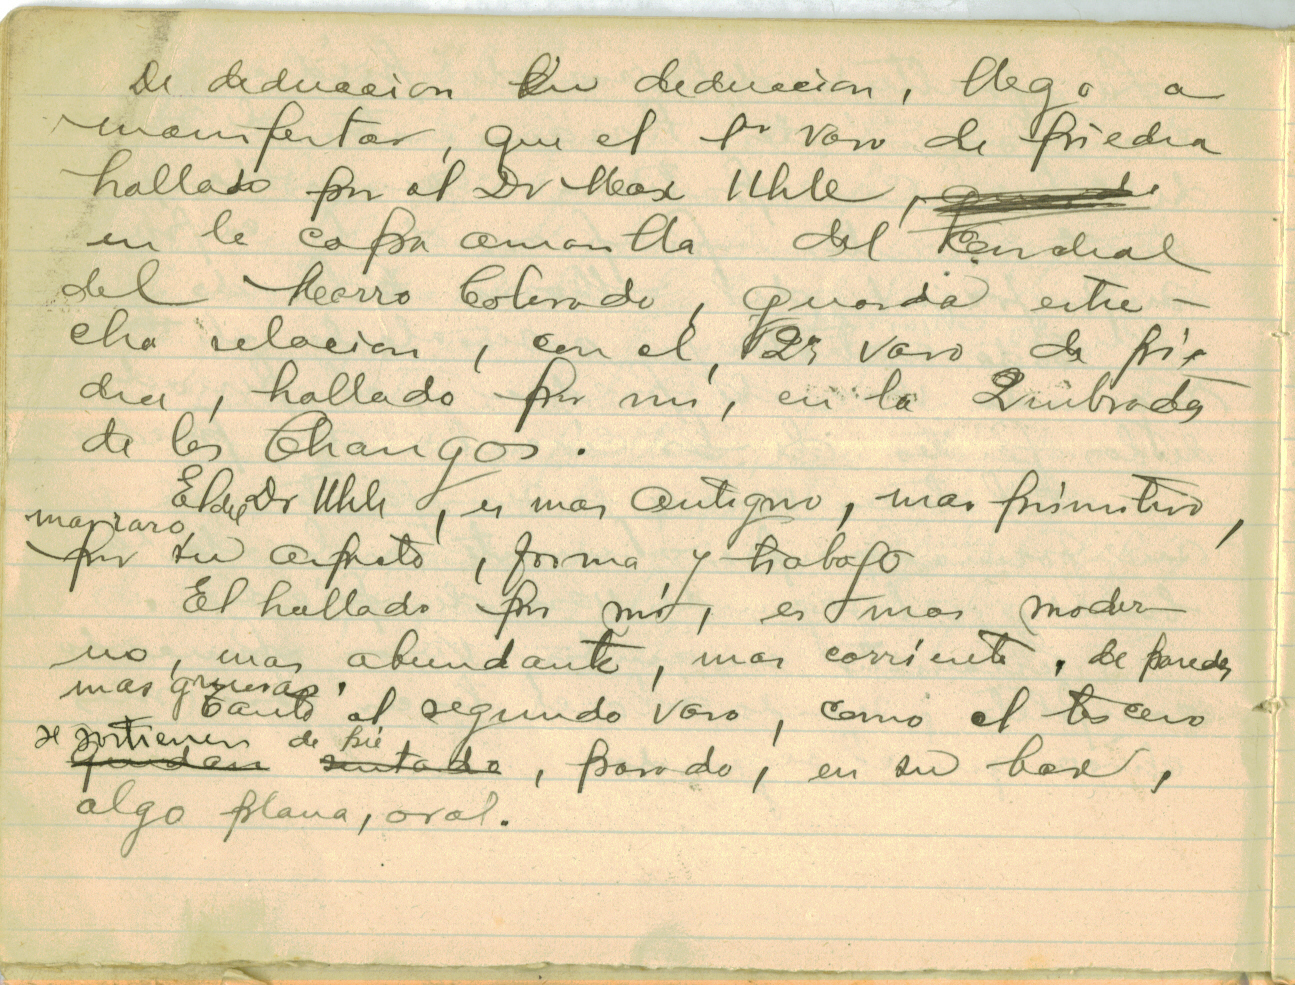 De deduccion En deduccion, llego a
manifestar, que el 1r vaso de piedra
hallado por el Dr Max Uhle,
en la capa amarilla del Conchal
del Morro Colorado, guarda estre-
cha relacion, con el, 2º vaso de pie-
dra, hallado por mi, en la Quebrada
de los Changos.
El del Dr Uhle, es mas antiguo, mas primitivo,
mas raro,
por su aspecto, forma, y trabajo
El hallado por mi, es mas moder-
no, mas abundante, mas corriente, de paredes
mas gruesas.
Tanto el segundo vaso, como el tercero
se sostienen de pie
quedan sentado, parado, en su base,
algo plana, oval.